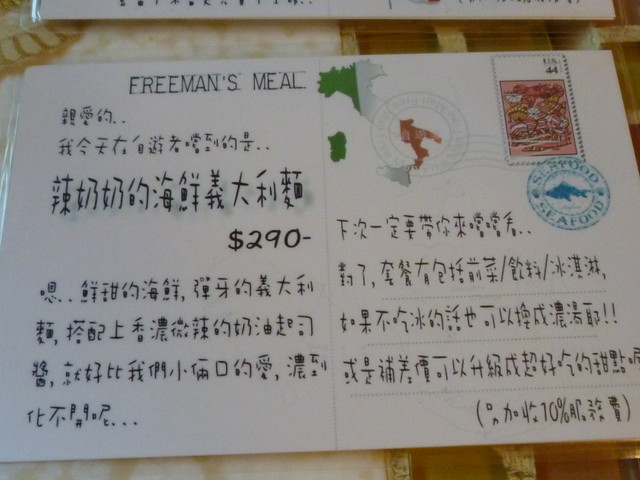 FREEMAN'S MEAL
親愛的..
我今天在自遊者嚐到的是..
辣奶奶的海鮮義大利麵
$290-
嗯..鮮甜的海鮮,彈牙的義大利
麵,搭配上香濃微辣的奶油起司
醬,就好比我們小倆口的愛,濃到
化不開呢...
US
44
SEAFOOD
SEAFOOD
下次一定要帶你來嚐嚐看..
對了,套餐有包括前菜/飲料/冰淇淋,
如果不吃冰的話也可以換成濃湯耶!!
或是補差價可以升級成超好吃的甜點喔
(只加收10%服務費)